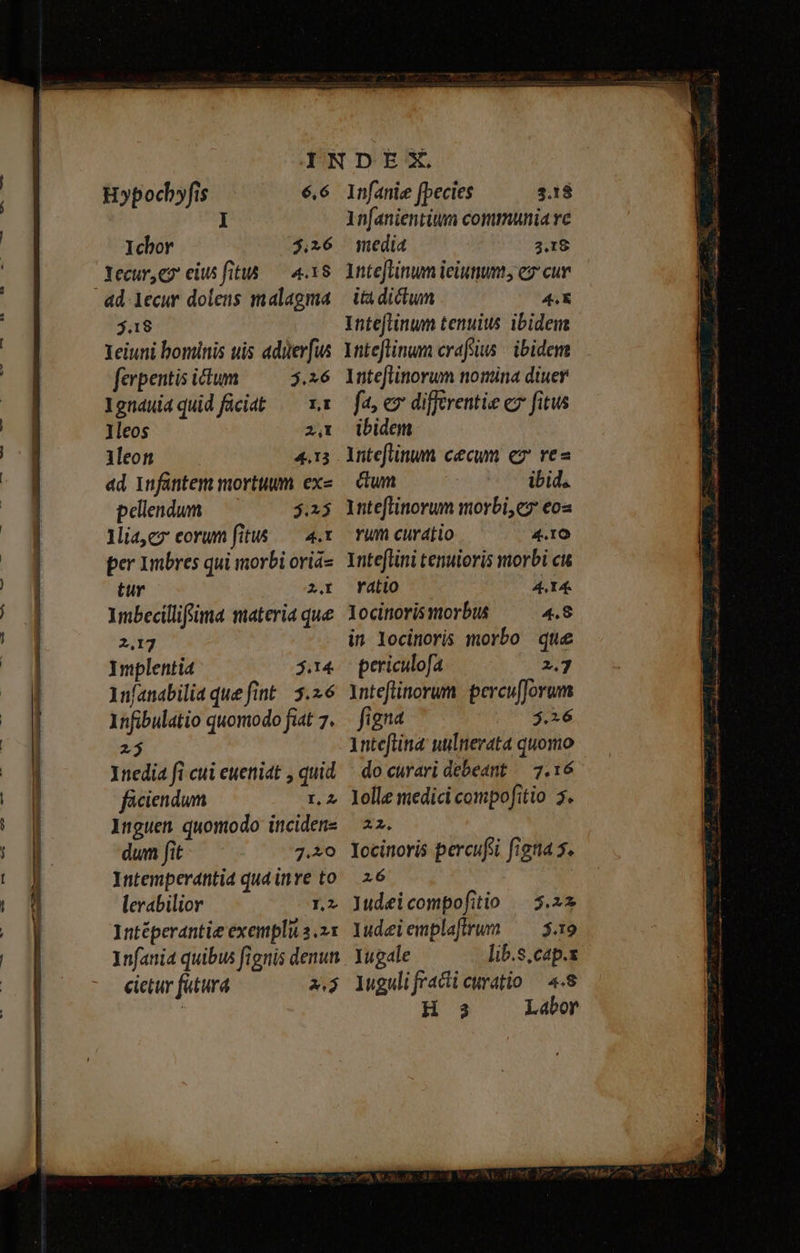 INDEX.
Hypochysis 6,6
I
Ichor 5,26
Iecur, & eius situs 4.18
ad Iecur dolens malagma
5.18
Ieiuni hominis uis aduersus
serpentis ictum 5.26
Ignauia quid faciat 1,1
Ileos 2,1
Ileon 4.13
ad Infantem mortuum ex=
pellendum 5.25
Ilia, & eorum situs 4.1
per Imbres qui morbi oriā=
tur 2.1
Imbecillissima materia quæ
2,17
Implentia 5.14
Insanabilia quæ sint 5.26
Infibulatio quomodo fiat 7.
25
Inedia si cui eueniat, quid
faciendum 1.2
Inguen quomodo inciden=
dum sit 7.20
Intemperantia qua in re to
lerabilior 1,2
Intēperantiæ exemplū 3.21
Insania quibus signis denun
cietur futura 2.5
Insaniæ species 3.18
Insanientium communia re
media 3.18
Intestinum ieiunum, & cur
ita dictum 4.1
Intestinum tenuius ibidem
Intestinum crassius ibidem
Intestinorum nomina diuer
sa, & differentiæ & situs
ibidem
Intestinum cæcum & re=
ctum ibid.
Intestinorum morbi, & eo=
rum curatio 4.10
Intestini tenuioris morbi cu
ratio 4.14
Iocinoris morbus 4.8
in Iocinoris morbo quæ
periculosa 2.7
Intestinorum percussorum
signa 5,26
Intestina uulnerata quomo
do curari debeant 7.16
Iollæ medici compositio 5.
22.
Iocinoris percussi signa 5.
26
Iudæi compositio 5.22
Iudæi emplastrum 5.19
Iugale lib.8,cap.1
Iuguli fracti curatio 4.8
H 3 Labor